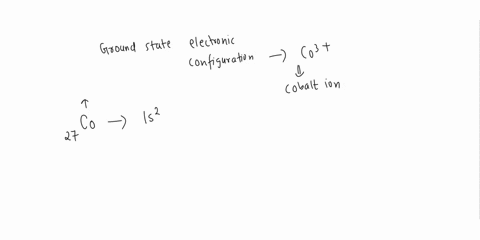 Ground state electronic
configuration → Co³⁺
⇓
Cobalt ion
↑
₂₇Co → 1s²